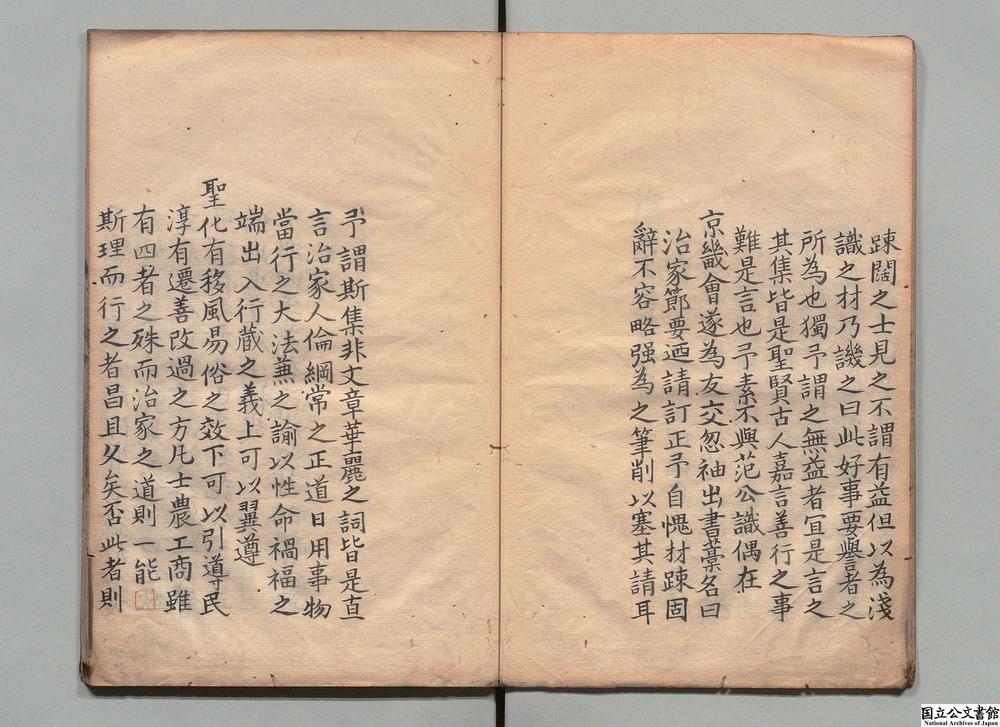 踈闊之士見之不謂有益但以為淺
識之材乃譏之曰此好事要譽者之
所為也獨予謂之無益者宜是言之
其集皆是聖賢古人嘉言善行之事
難是言也予素不與范公識偶在
京畿會遂為友交忽袖出書藁名曰
治家節要迺請訂正予自愧材踈固
辭不容略强為之筆削以塞其請耳
予謂斯集非文章華麗之詞皆是直
言治家人倫綱常之正道日用事物
當行之大法兼之諭以性命禍福之
端出入行藏之義上可以翼遵
聖化有移風易俗之效下可以引導民
淳有遷善改過之方凡士農工商雖
有四者之殊而治家之道則一能
斯理而行之者昌且久矣否此者則
国立公文書館
National Archives of Japan